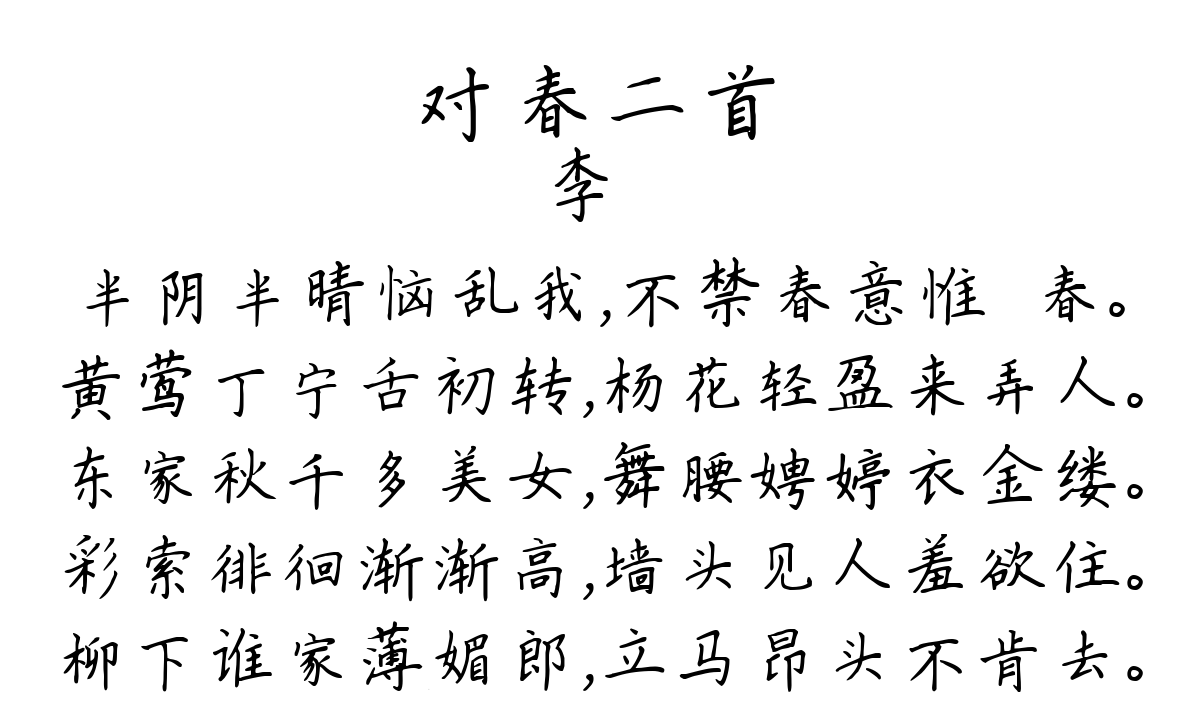 对春二首
李
半阴半晴恼乱我,不禁春意惟 春。
黄莺丁宁舌初转,杨花轻盈来弄人。
东家秋千多美女,舞腰娉婷衣金缕。
彩索徘徊渐渐高,墙头见人羞欲住。
柳下谁家薄媚郎,立马昂头不肯去。